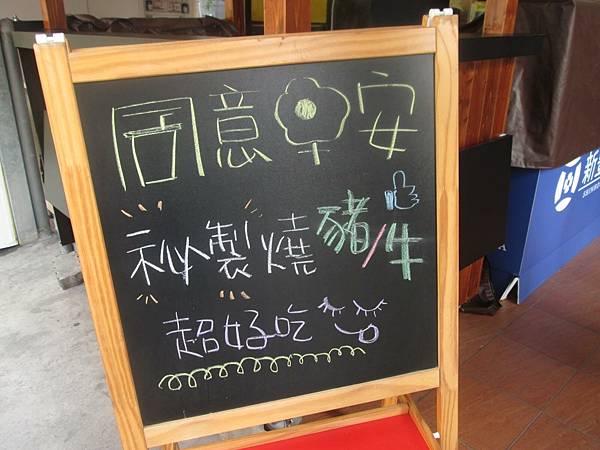 同意早安
祕製燒豬/牛
超好吃
新